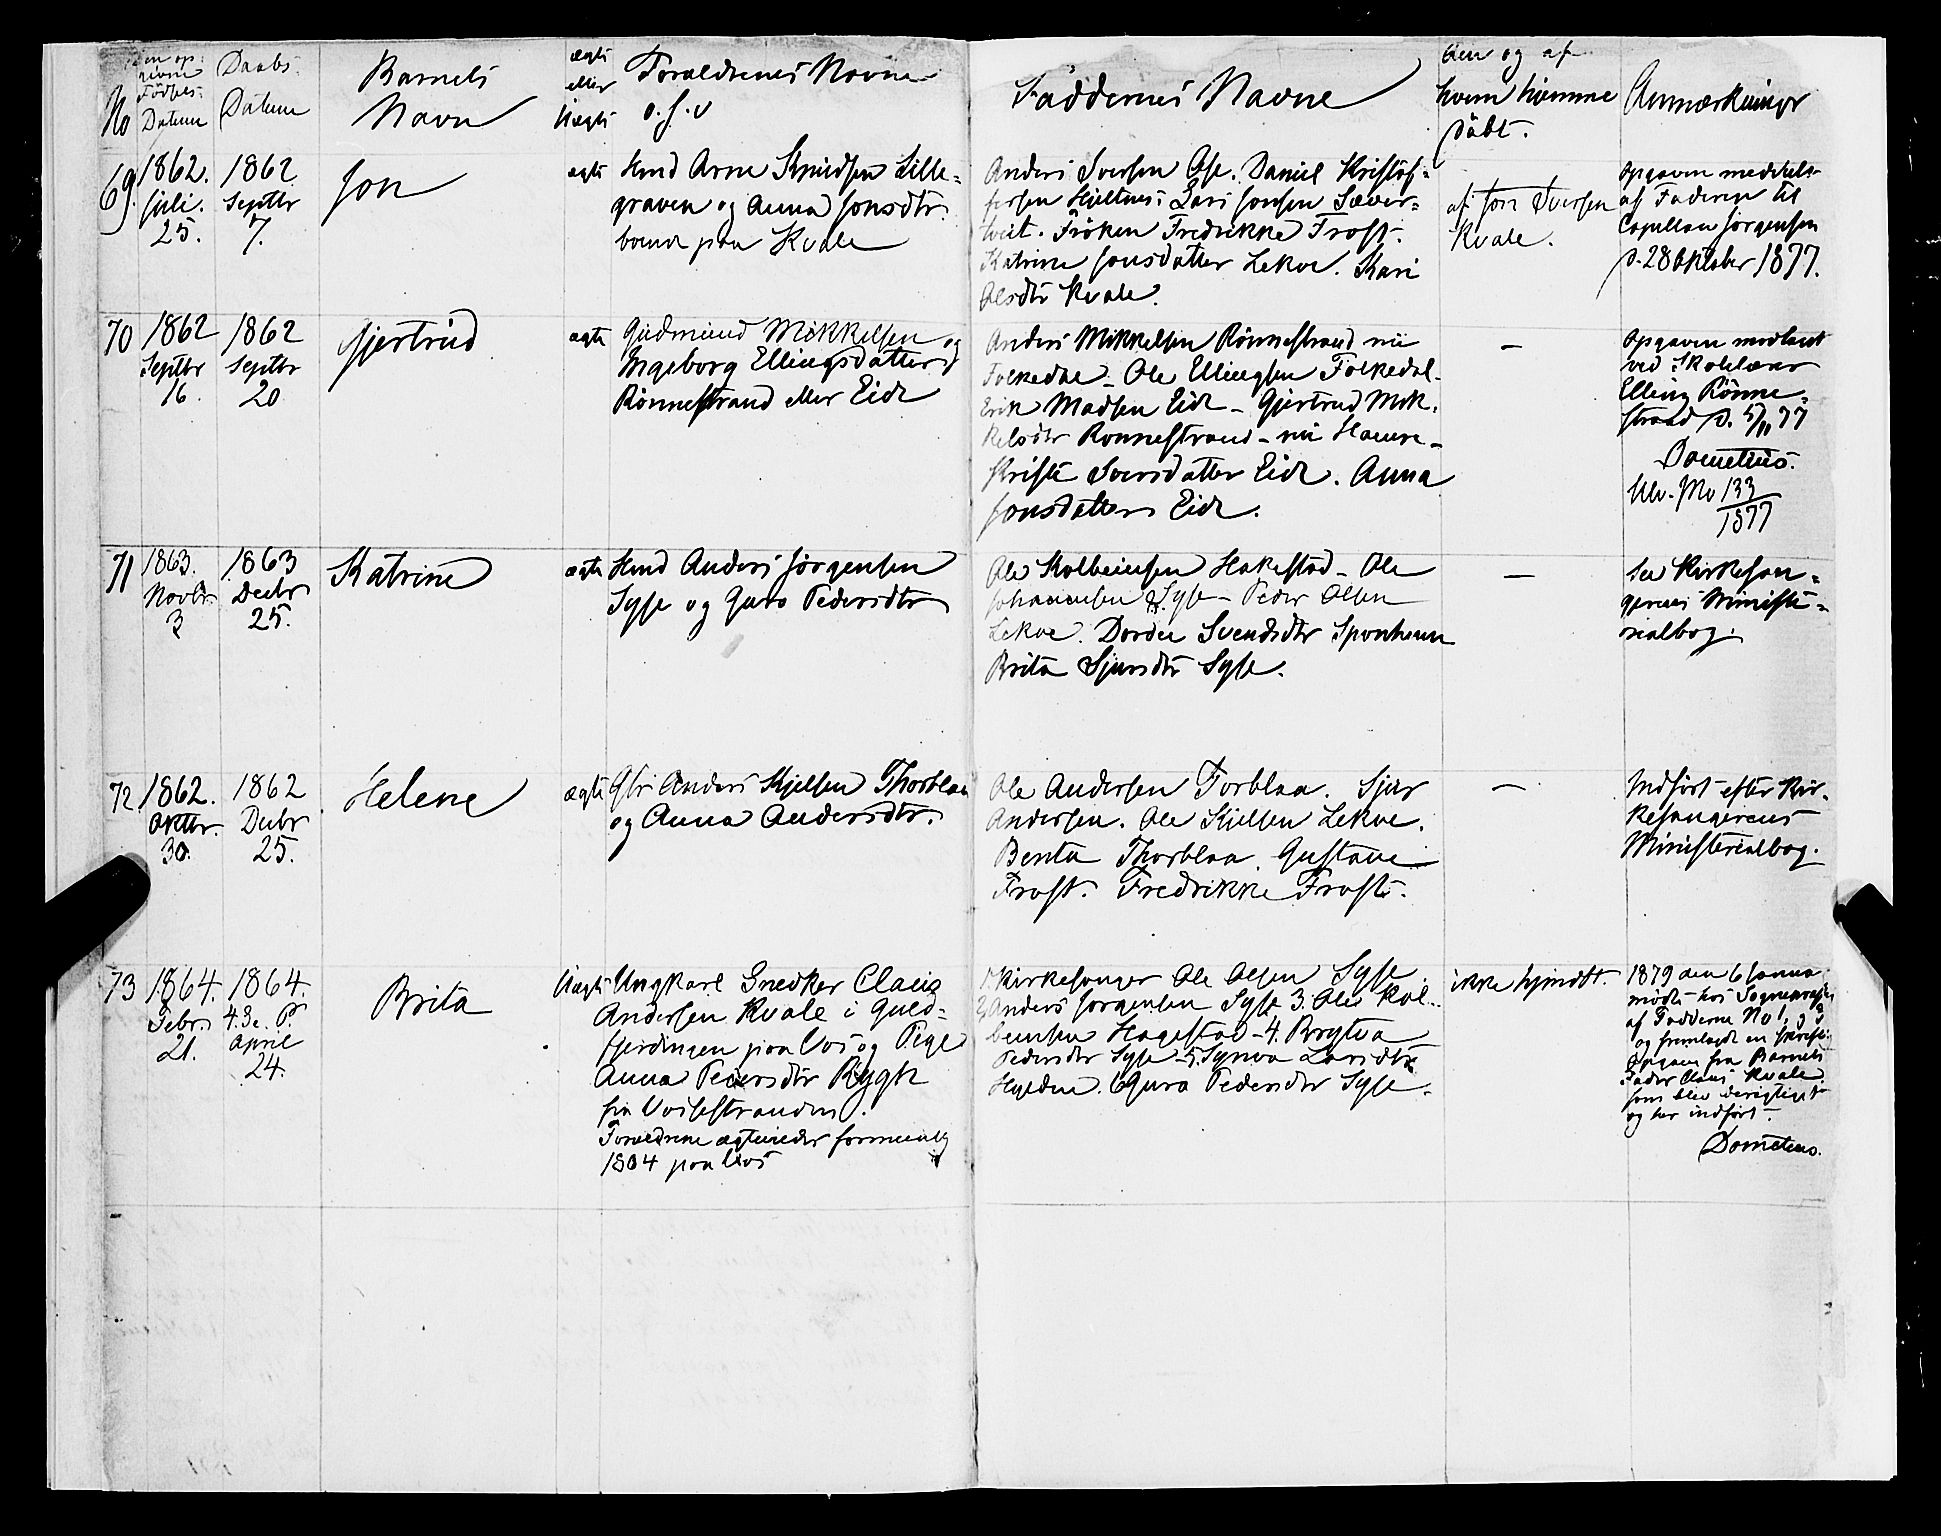 No
Den op-
givne
Födsels-
Datum
Daabs-
Datum
Barnets
Navn
ægte
eller
Uægte
Forældrenes Navne
o. s. v
Faddernes Navne
hvem hjemme
döbt.
Anmærkninger
69.
1862.
Juli.
25.
1862
Septbr
7.
Jon
ægte
Hmd Arne Knudsen Lille-
graven og Anna Jonsdtr.
boende paa Kvale
Anders Iversen Ose. Daniel Kristof-
fersen Hjeltnes. Lars Jonsen Sæver-
tveit. Fröken Fredrikke Frost.
Katrine Jonsdatter Lekve. Kari
Olsdtr Kvale.
af Jon Iversen
Kvale.
Opgaven meddelt
af Faderen til
Capellan Jörgensen
d. 28 Oktober 1877.
70
1862
Septbr
16.
1862
Septbr
20
Gjertrud
ægte
Gudmund Mikkelsen og
Ingeborg Ellingsdatter
Rönnestrand eller Eide
Anders Mikkelsen Rönnestrand nu
Folkedal - Ole Ellingsen Folkedal.
Erik Madsen Eide - Gjertrud Mik-
kelsdtr Ronnestrand - nu Hamre -
Kristi Iversdatter Eide. Anna
Jonsdatter Eide.
-
Opgaven modtaget
ved Skolelærer
Elling Rönne-
strand d. 5/11 77
Dometius.
Ulv. No 133
1877
71
1863.
Novbr.
3
1863
Decbr
25.
Katrine
ægte
Hmd Anders Jörgensen
Syse og Guro Pedersdtr
Ole Kolbeinsen Hakestad - Ole
Johannesen Syse - Peder Olsen
Lekve. Dordei Svendsdtr Sponheim
Brita Sjursdtr Syse.
-
See Kirkesan-
gerens Ministe-
rialbog.
72
1862.
Oktbr.
30.
1862
Decbr
25.
Helene
ægte
Gbr Anders Kjelsen Thorblaa
og Anna Andersdtr.
Ole Andersen Torblaa. Sjur
Andersen. Ole Kjelsen Lekve.
Benta Thorblaa. Gustava
Frost. Fredrikke Frost.
-
Indfört efter Kir-
kesangerens
Ministerialbog.
73
1864.
Febr.
21.
1864.
4. Se. P.
April
24.
Brita
Uægte
Ungkarl Snedker Claus
Andersen Kvale i Guld-
fjerdingen paa Vos og Pige
Anna Pedersdtr Rygh
fra Vossestranden.
Forældrene ægteviedes formentlig
1864 paa Vos
1. Kirkesanger Ole Olsen Syse
2. Anders Jörgensen Syse 3. Ole Kol-
beinsen Hagestad - 4. Brytva
Pedersdtr Syse - 5. Synva Larsdtr
Hylden. 6 Guro Pedersdtr Syse.
ikke hjemdbt.
1879 den 6 Janua
mödte hos Sognepresten
af Fadderne No 1, 2, 3
og fremlagde en skreftl.
Opgave fra Barnets
Fader Claus Kvale
som blev berigtiget
og her indfört.
Dometius.